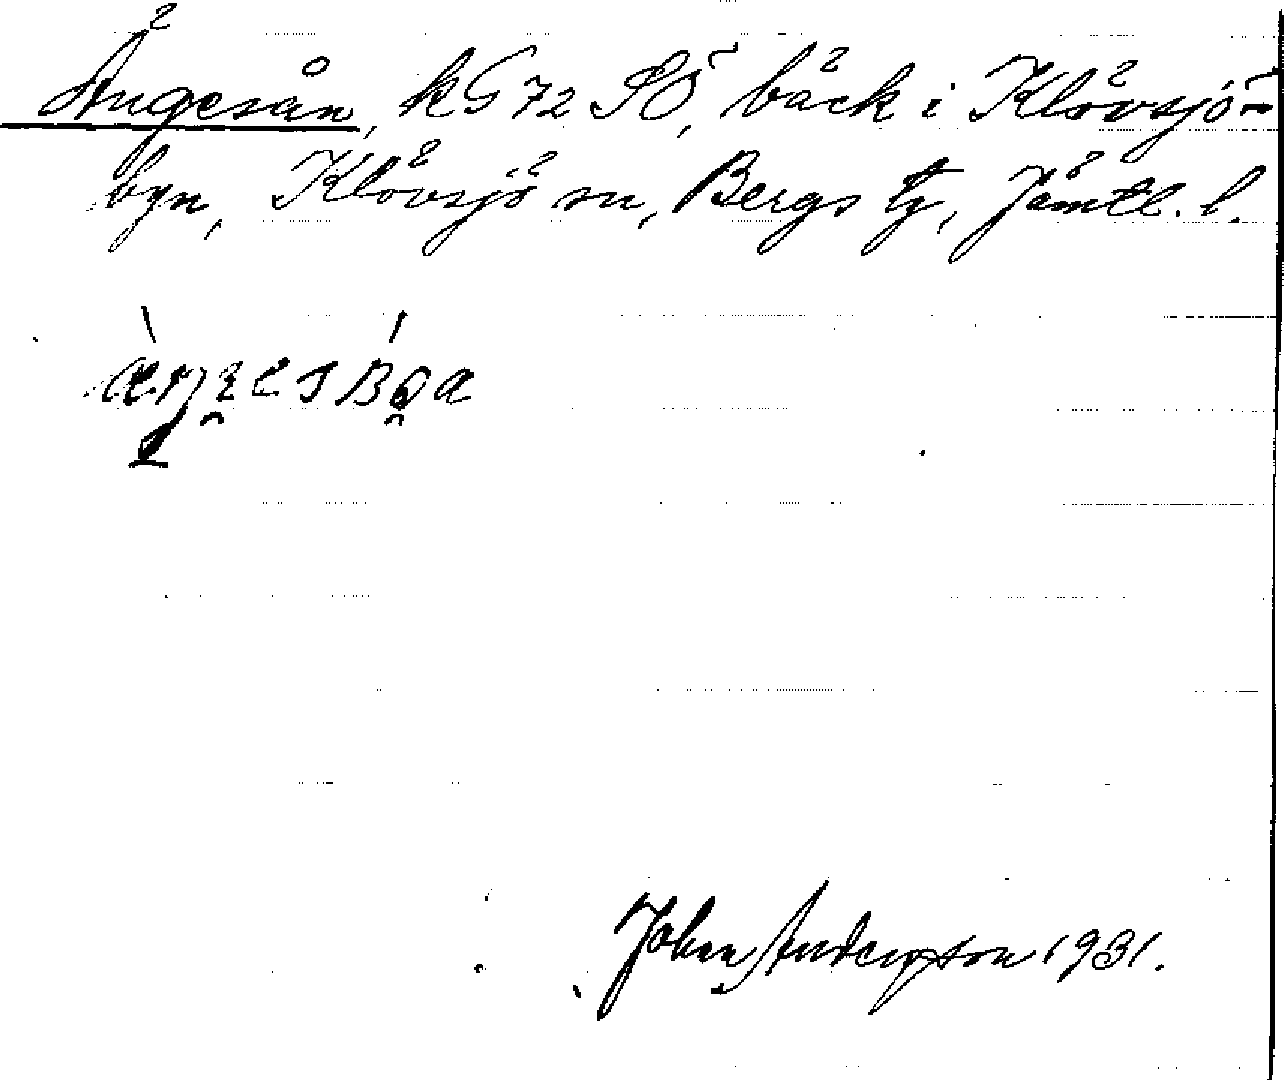 Ängesån, kG 72 SÖ, bäck i Klövsjö-
byn, Klövsjö sn, Bergs tg, Jämtl. l.
Johan Anderson 1931.